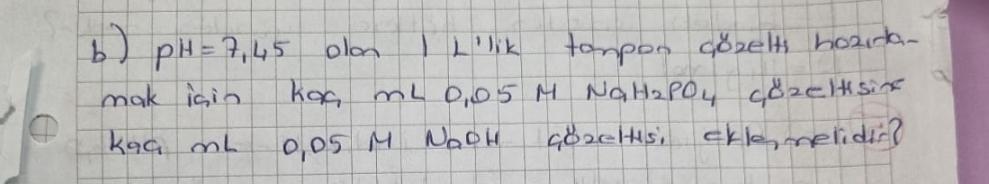 b) pH=7,45 olan 1 L'lik tampon çözelti hazırla-
mak için kaç mL 0,05 M NaH2PO4 çözeltisine
kaç mL 0,05 M NaOH çözeltisi eklenmelidir?